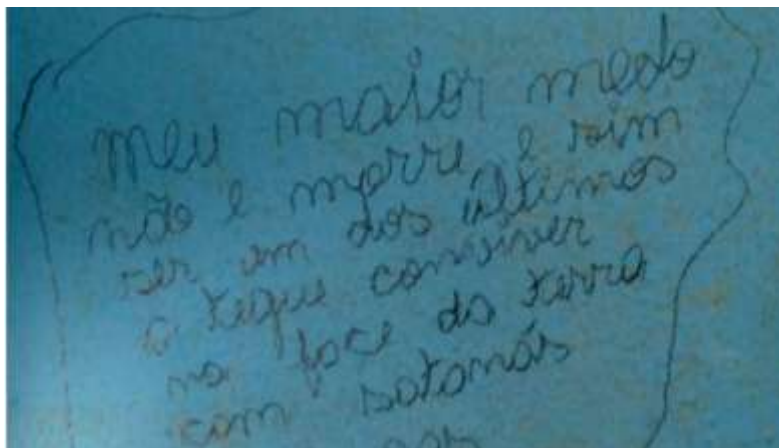 meu maior medo
não e morre e sim
ser um dos últimos
a teque conviver
na face da terra
com satanás